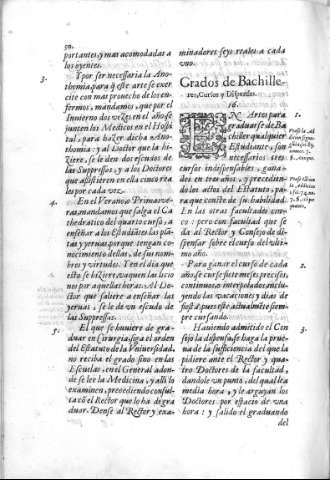 portantes y mas acomodadas a
los oyentes.
3.
Y por ser necessaria la Ano-
thomia para q̃ este arte se exer
cite con mas prouecho de los en-
fermos, mandamos, que por el
Inuierno dos vezes en el año se
junten los Medicos en el Hospi
tal, para hazer dicha Ano-
thomia: y al Doctor que la hi-
ziere, se le den dos escudos de
las Suppressas, y a los Doctores
que assistieren en ella cinco rea
les por cada vez.
4.
En el Verano o Primaue-
ra, mandamos que salga el Ca
thedratico del quarto curso, a
enseñar a los Estudiãtes las plã-
tas y yeruas, porque tengan co-
nocimiento dellas, de sus nom-
bres y virtudes. Y en el dia que
esto se hiziere, vaquen las licio
nes por aquellas horas. Al Do-
ctor que saliere a enseñar las
yeruas, se le de vn escudo de
las Suppressas.
5.
El que se huuiere de gra-
duar en Cirurgia, siga el orden
del Estatuto de la Vniuersidad,
no reciba el grado sino en las
Escuelas, en el General adon-
de se lee la Medicina, y alli lo
examinen, precediendo consul-
ta cõ el Rector que lo ha de gra
duar. Dense al Rector y exa-
minadores seys reales a cada
vno.
Grados de Bachille-
res, Cursos y Dispensas.
16.
1.
EN Artes para
graduarse de Ba
chiller qualquier
Estudiante, son
necessarios tres
cursos indispensables, gana-
dos en tres años, y precedien-
do los actos del Estatuto, pa-
ra que conste de su habilidad.
En las otras facultades cin-
co: pero con facultad que se
da al Rector y Consejo de di-
spensar sobre el curso del vlti-
mo año.
2.
Para ganar el curso de cada
año se curse siete meses precisos,
continuos o interpolados, inclu-
yendo las vacaciones y dias de
fiesta, pues este actualmẽte siem-
pre cursando.
3.
Hauiendo admitido el Con
sejo la dispensa, se haga la prue-
ua de la sufficiencia del que la
pidiere ante el Rector y qua-
tro Doctores de la facultad,
dandole vn punto, del qual lea
media hora, y le arguyan los
Doctores por espacio de vna
hora: y salido el graduando
del